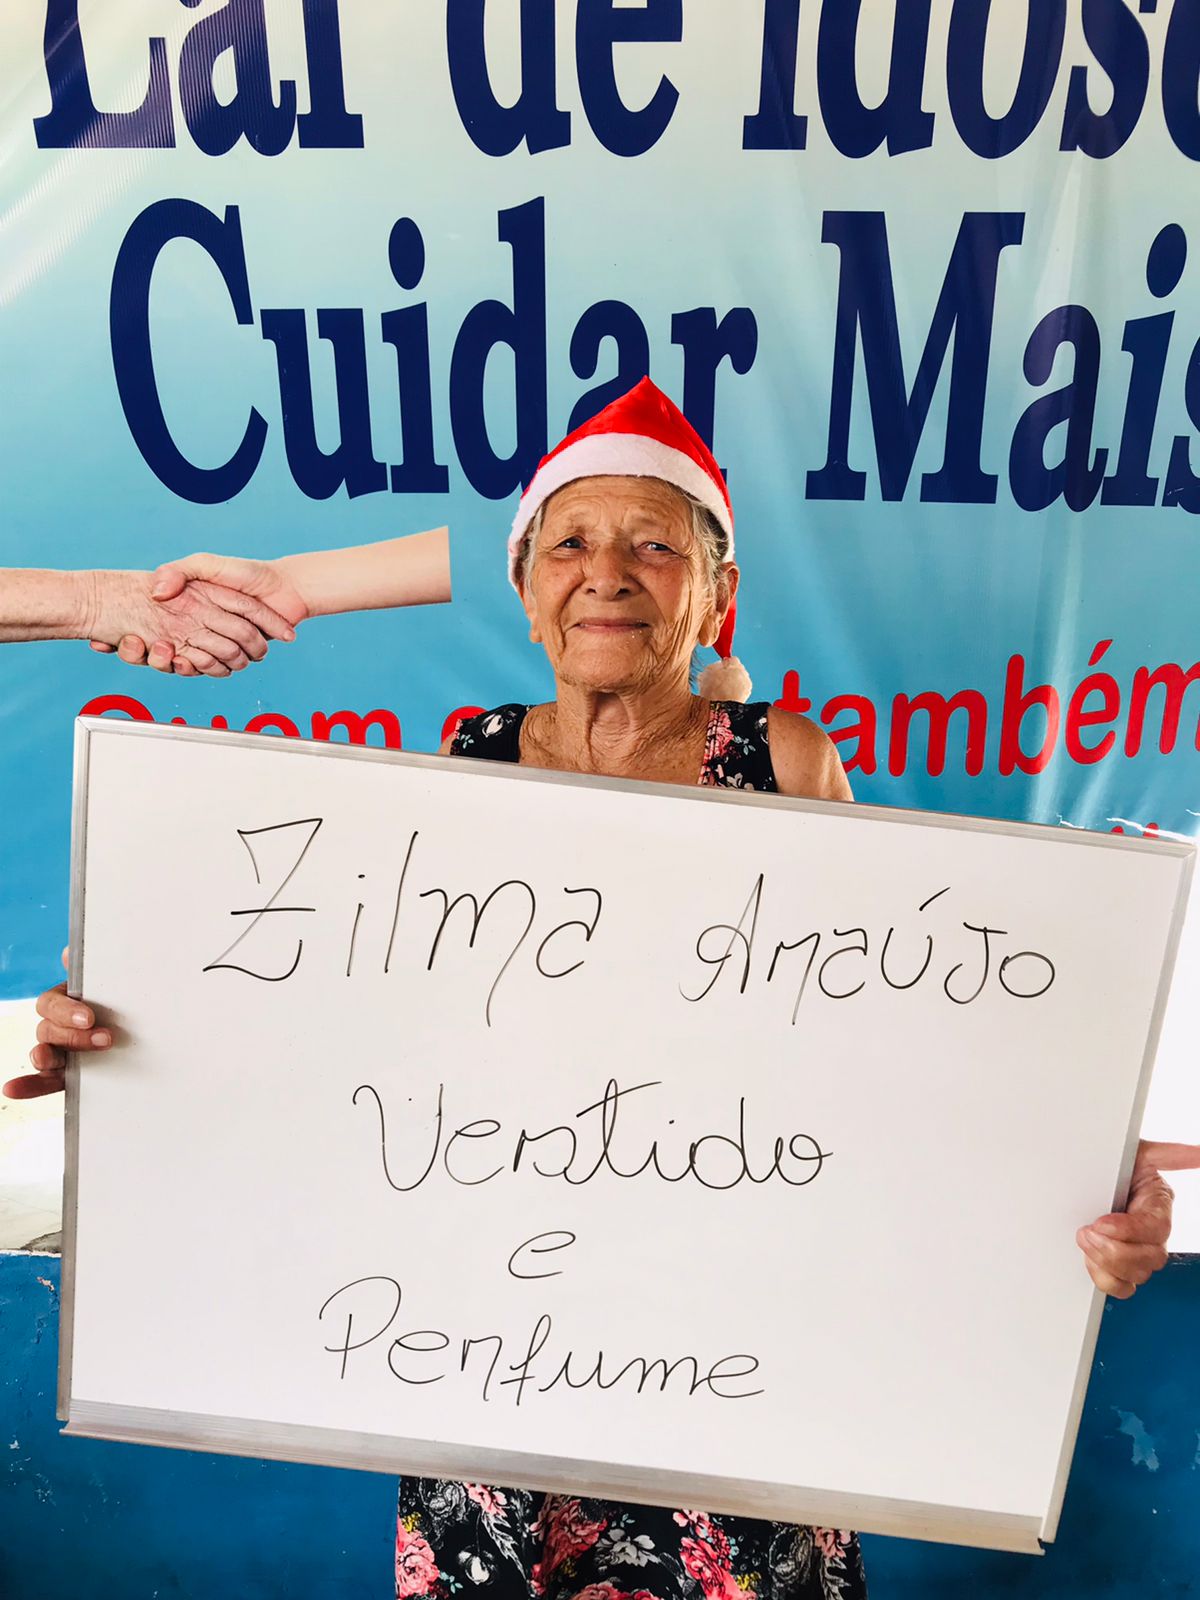 Lar de idoso
Cuidar Mais
Quem também
Zilma Araújo
Vestido
e
Perfume